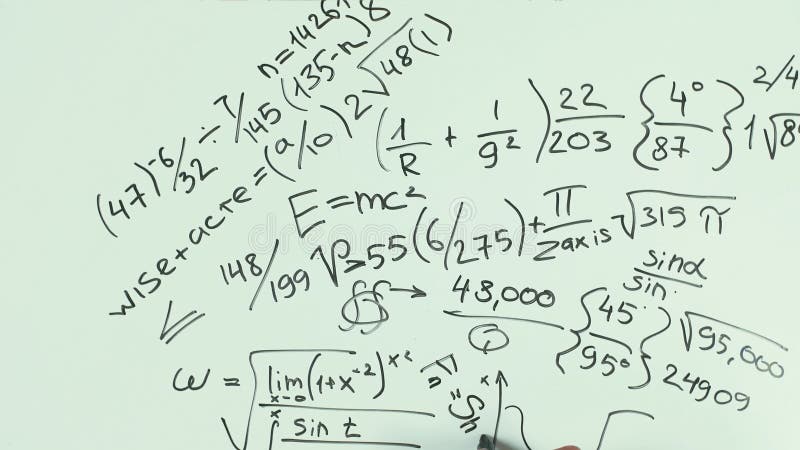 n=1426
(47)^-6/32 ÷ 7/145 (135-n)8
wise+acre=(a/10)^2 2√48(1)
(1/R + 1/g²) 22/203 {4°/87} 1√8
2/4
E=mc²
148/199 √P≥55(6/275)+ π/z axis √315 π
sinα/sin.
→ 43,000
{45°/95°} √95,000
24909
ω = √lim x→0 (1+x^-2)^x²
sin t